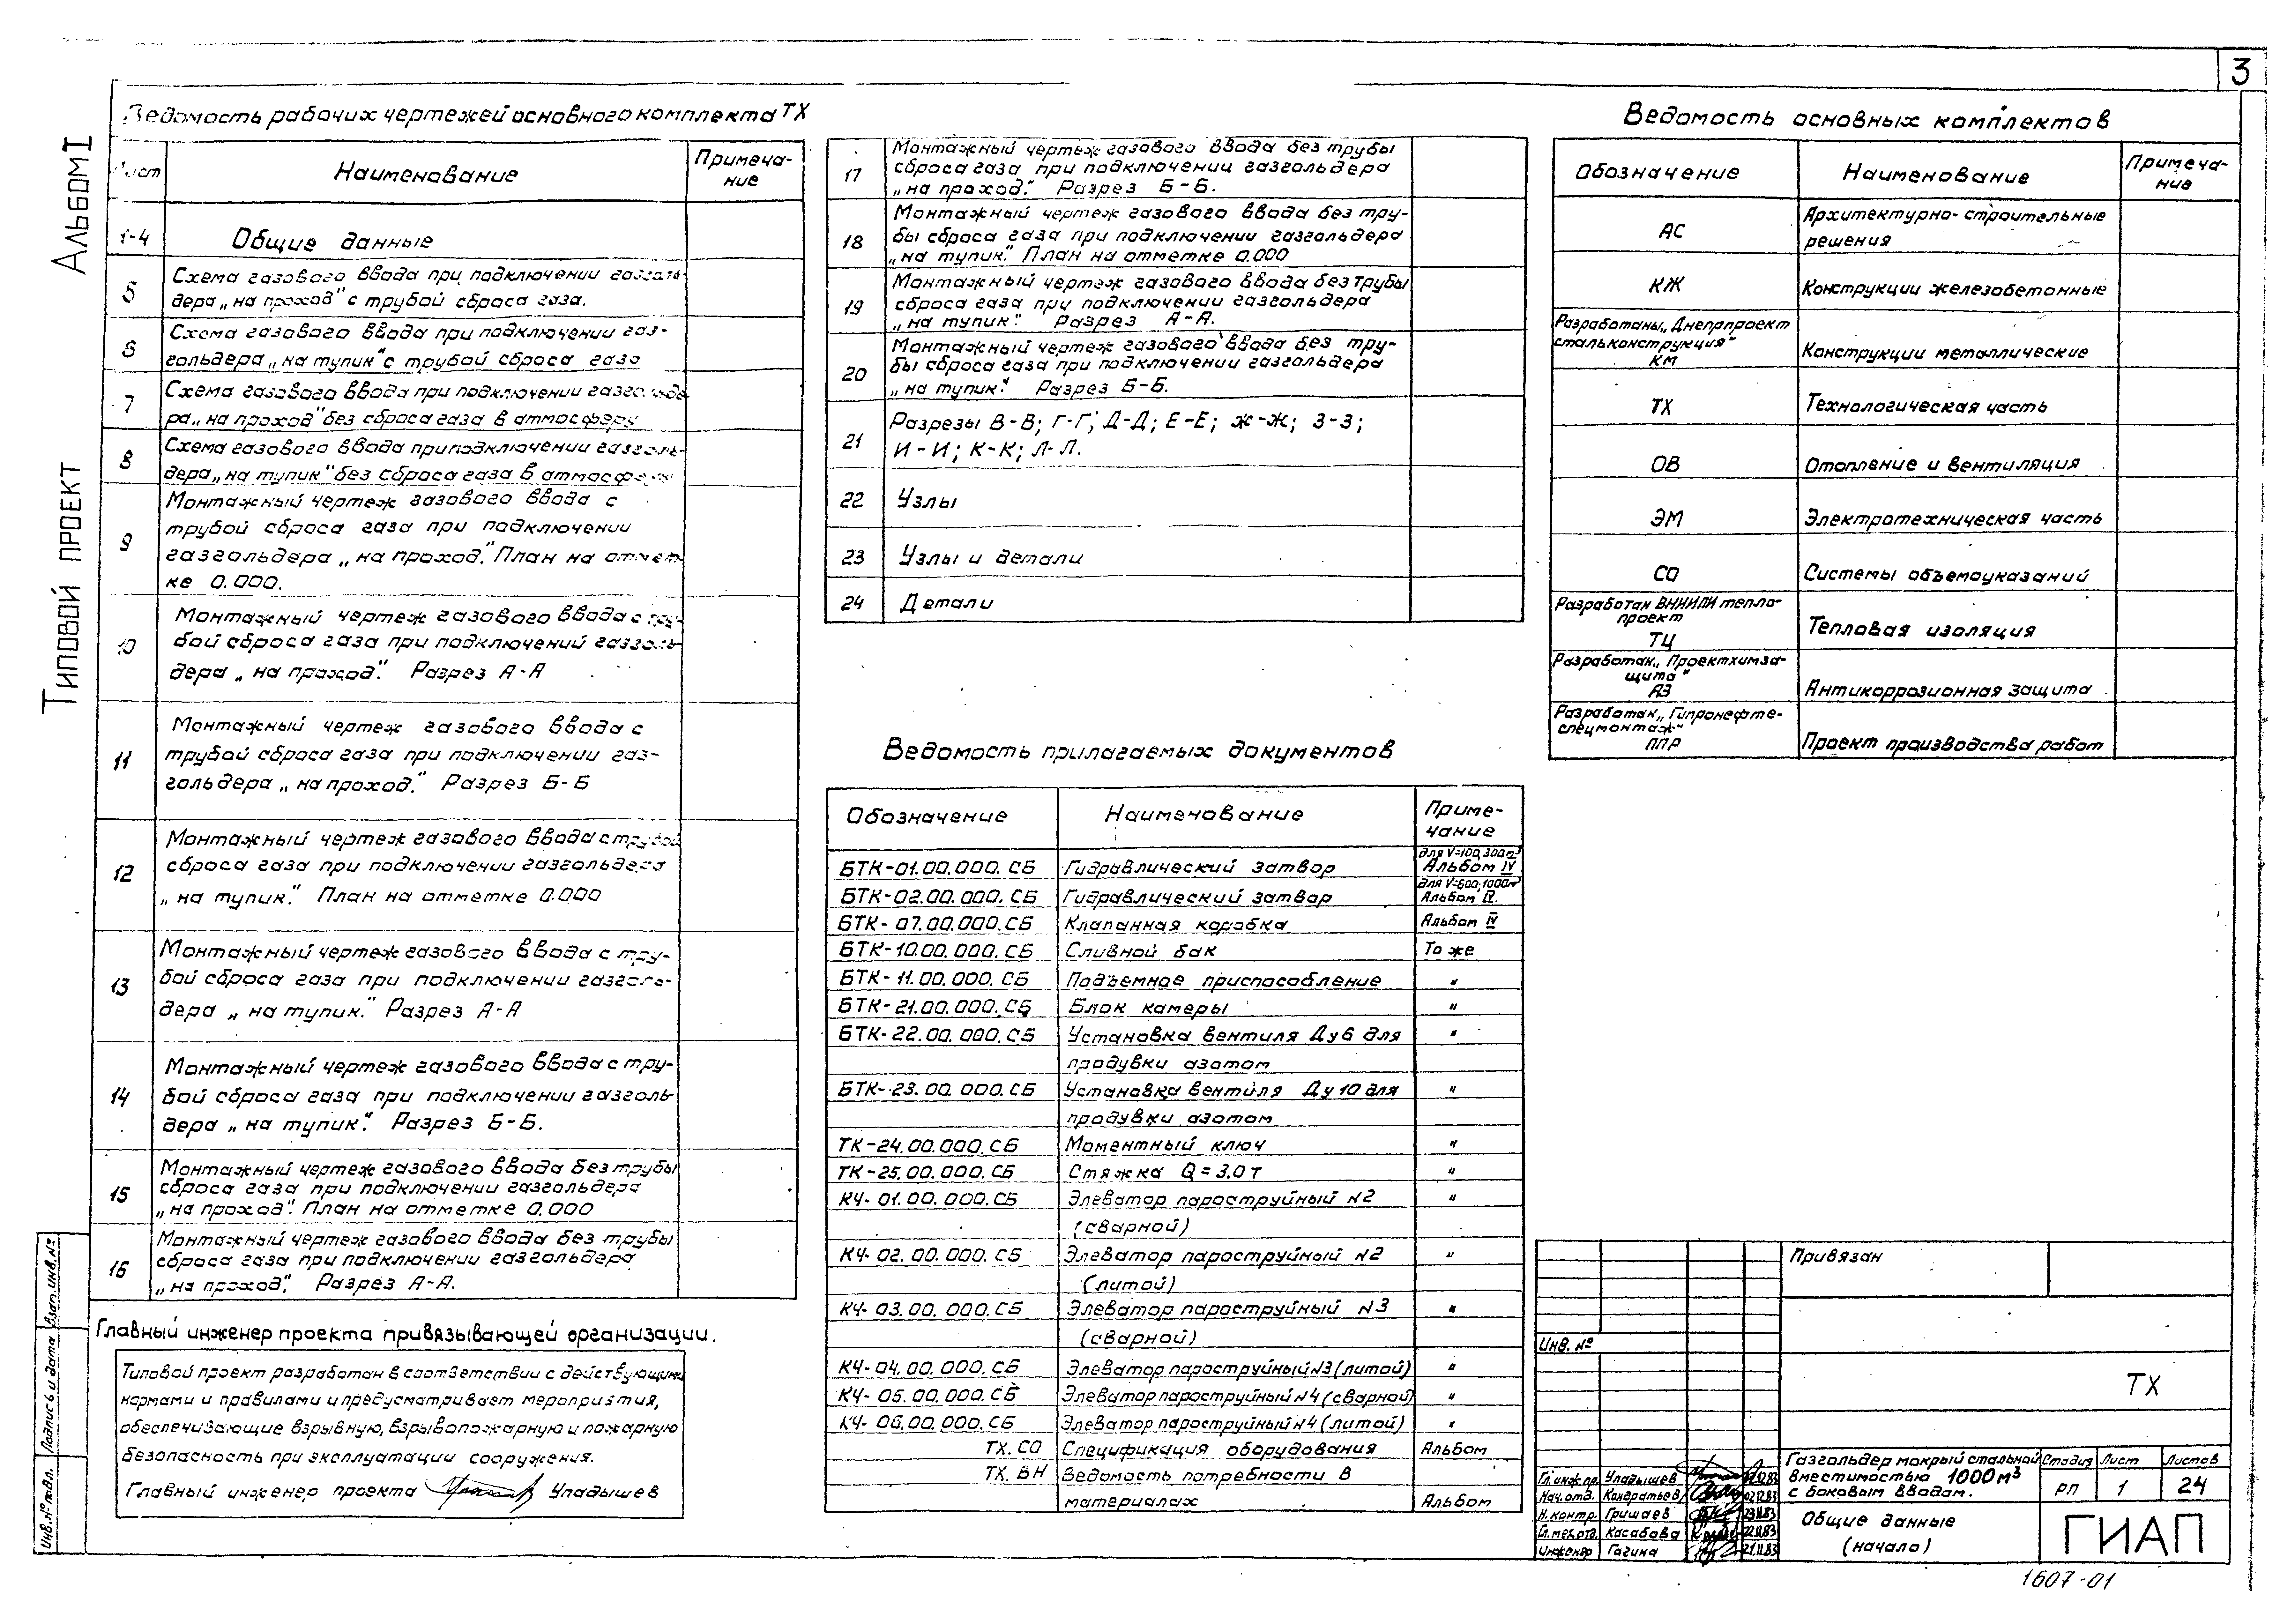 3
Альбом I
Типовой проект
Ведомость рабочих чертежей основного комплекта ТХ
Лист
Наименование
Примеча-
ние
1-4
Общие данные
5
Схема газового ввода при подключении газголь-
дера „на проход" с трубой сброса газа.
6
Схема газового ввода при подключении газ-
гольдера „на тупик" с трубой сброса газа
7
Схема газового ввода при подключении газгольде-
ра „на проход" без сброса газа в атмосферу
8
Схема газового ввода при подключении газголь-
дера „на тупик" без сброса газа в атмосферу
9
Монтажный чертеж газового ввода с
трубой сброса газа при подключении
газгольдера „на проход." План на отмет-
ке 0.000.
10
Монтажный чертеж газового ввода с тру-
бой сброса газа при подключений газголь-
дера „на проход." Разрез А-А
11
Монтажный чертеж газового ввода с
трубой сброса газа при подключении газ-
гольдера „на проход." Разрез Б-Б
12
Монтажный чертеж газового ввода с трубой
сброса газа при подключении газгольдера
„на тупик." План на отметке 0.000
13
Монтажный чертеж газового ввода с тру-
бой сброса газа при подключении газголь-
дера „на тупик." Разрез А-А
14
Монтажный чертеж газового ввода с тру-
бой сброса газа при подключении газголь-
дера „на тупик". Разрез Б-Б.
15
Монтажный чертеж газового ввода без трубы
сброса газа при подключении газгольдера
„на проход". План на отметке 0.000
16
Монтажный чертеж газового ввода без трубы
сброса газа при подключении газгольдера
„на проход". Разрез А-А.
Главный инженер проекта привязывающей организации.
Типовой проект разработан в соответствии с действующими
нормами и правилами и предусматривает мероприятия,
обеспечивающие взрывную, взрывопожарную и пожарную
безопасность при эксплуатации сооружения.
Главный инженер проекта Уладышев
17
Монтажный чертеж газового ввода без трубы
сброса газа при подключении газгольдера
„на проход." Разрез Б-Б.
18
Монтажный чертеж газового ввода без тру-
бы сброса газа при подключении газгольдера
„на тупик." План на отметке 0.000
19
Монтажный чертеж газового ввода без трубы
сброса газа при подключении газгольдера
„на тупик". Разрез А-А.
20
Монтажный чертеж газового ввода без тру-
бы сброса газа при подключении газгольдера
„на тупик". Разрез Б-Б.
21
Разрезы В-В; Г-Г; Д-Д; Е-Е; Ж-Ж; З-З;
И-И; К-К; Л-Л.
22
Узлы
23
Узлы и детали
24
Детали
Ведомость прилагаемых документов
Обозначение
Наименование
Приме-
чание
БТК-01.00.000.СБ Гидравлический затвор для V=100,300м³ Альбом IV
БТК-02.00.000.СБ Гидравлический затвор для V=600,1000м³ Альбом IV.
БТК-07.00.000.СБ Клапанная коробка Альбом IV
БТК-10.00.000.СБ Сливной бак То же
БТК-11.00.000.СБ Подъемное приспособление "
БТК-21.00.000.СБ Блок камеры "
БТК-22.00.000.СБ Установка вентиля Ду6 для "
продувки азотом
БТК-23.00.000.СБ Установка вентиля Ду10 для "
продувки азотом
ТК-24.00.000.СБ Моментный ключ "
ТК-25.00.000.СБ Стяжка Q=3.0т "
КЧ-01.00.000.СБ Элеватор пароструйный N2 "
(сварной)
КЧ-02.00.000.СБ Элеватор пароструйный N2 "
(литой)
КЧ-03.00.000.СБ Элеватор пароструйный N3 "
(сварной)
КЧ-04.00.000.СБ Элеватор пароструйный N3 (литой) "
КЧ-05.00.000.СБ Элеватор пароструйный N4 (сварной) "
КЧ-06.00.000.СБ Элеватор пароструйный N4 (литой) "
ТХ.СО Спецификация оборудования Альбом
ТХ.ВН Ведомость потребности в
материалах Альбом
Ведомость основных комплектов
Обозначение
Наименование
Примеча-
ние
АС
Архитектурно-строительные
решения
КЖ
Конструкции железобетонные
Разработаны „Днепрпроект
стальконструкция"
КМ
Конструкции металлические
ТХ
Технологическая часть
ОВ
Отопление и вентиляция
ЭМ
Электротехническая часть
СО
Системы объемоуказаний
Разработан ВНИПИ тепло-
проект
ТЦ
Тепловая изоляция
Разработан „Проектхимза-
щита"
АЗ
Антикоррозионная защита
Разработан „Гипронефте-
спецмонтаж"
ППР
Проект производства работ
Привязан
Инв. №
ТХ
Гл.инж.пр. Уладышев 02.12.83
Нач.отд. Кондратьев 02.12.83
Н.контр. Гришаев 23.11.83
Гл.мех.отд. Касабова 22.11.83
Инженер Гагина 21.11.83
Газгольдер мокрый стальной
вместимостью 1000м³
с боковым вводом.
Стадия Лист Листов
РП 1 24
Общие данные
(начало)
ГИАП
1607-01
Взам.инв.№
Подпись и дата
Инв.№ подл.